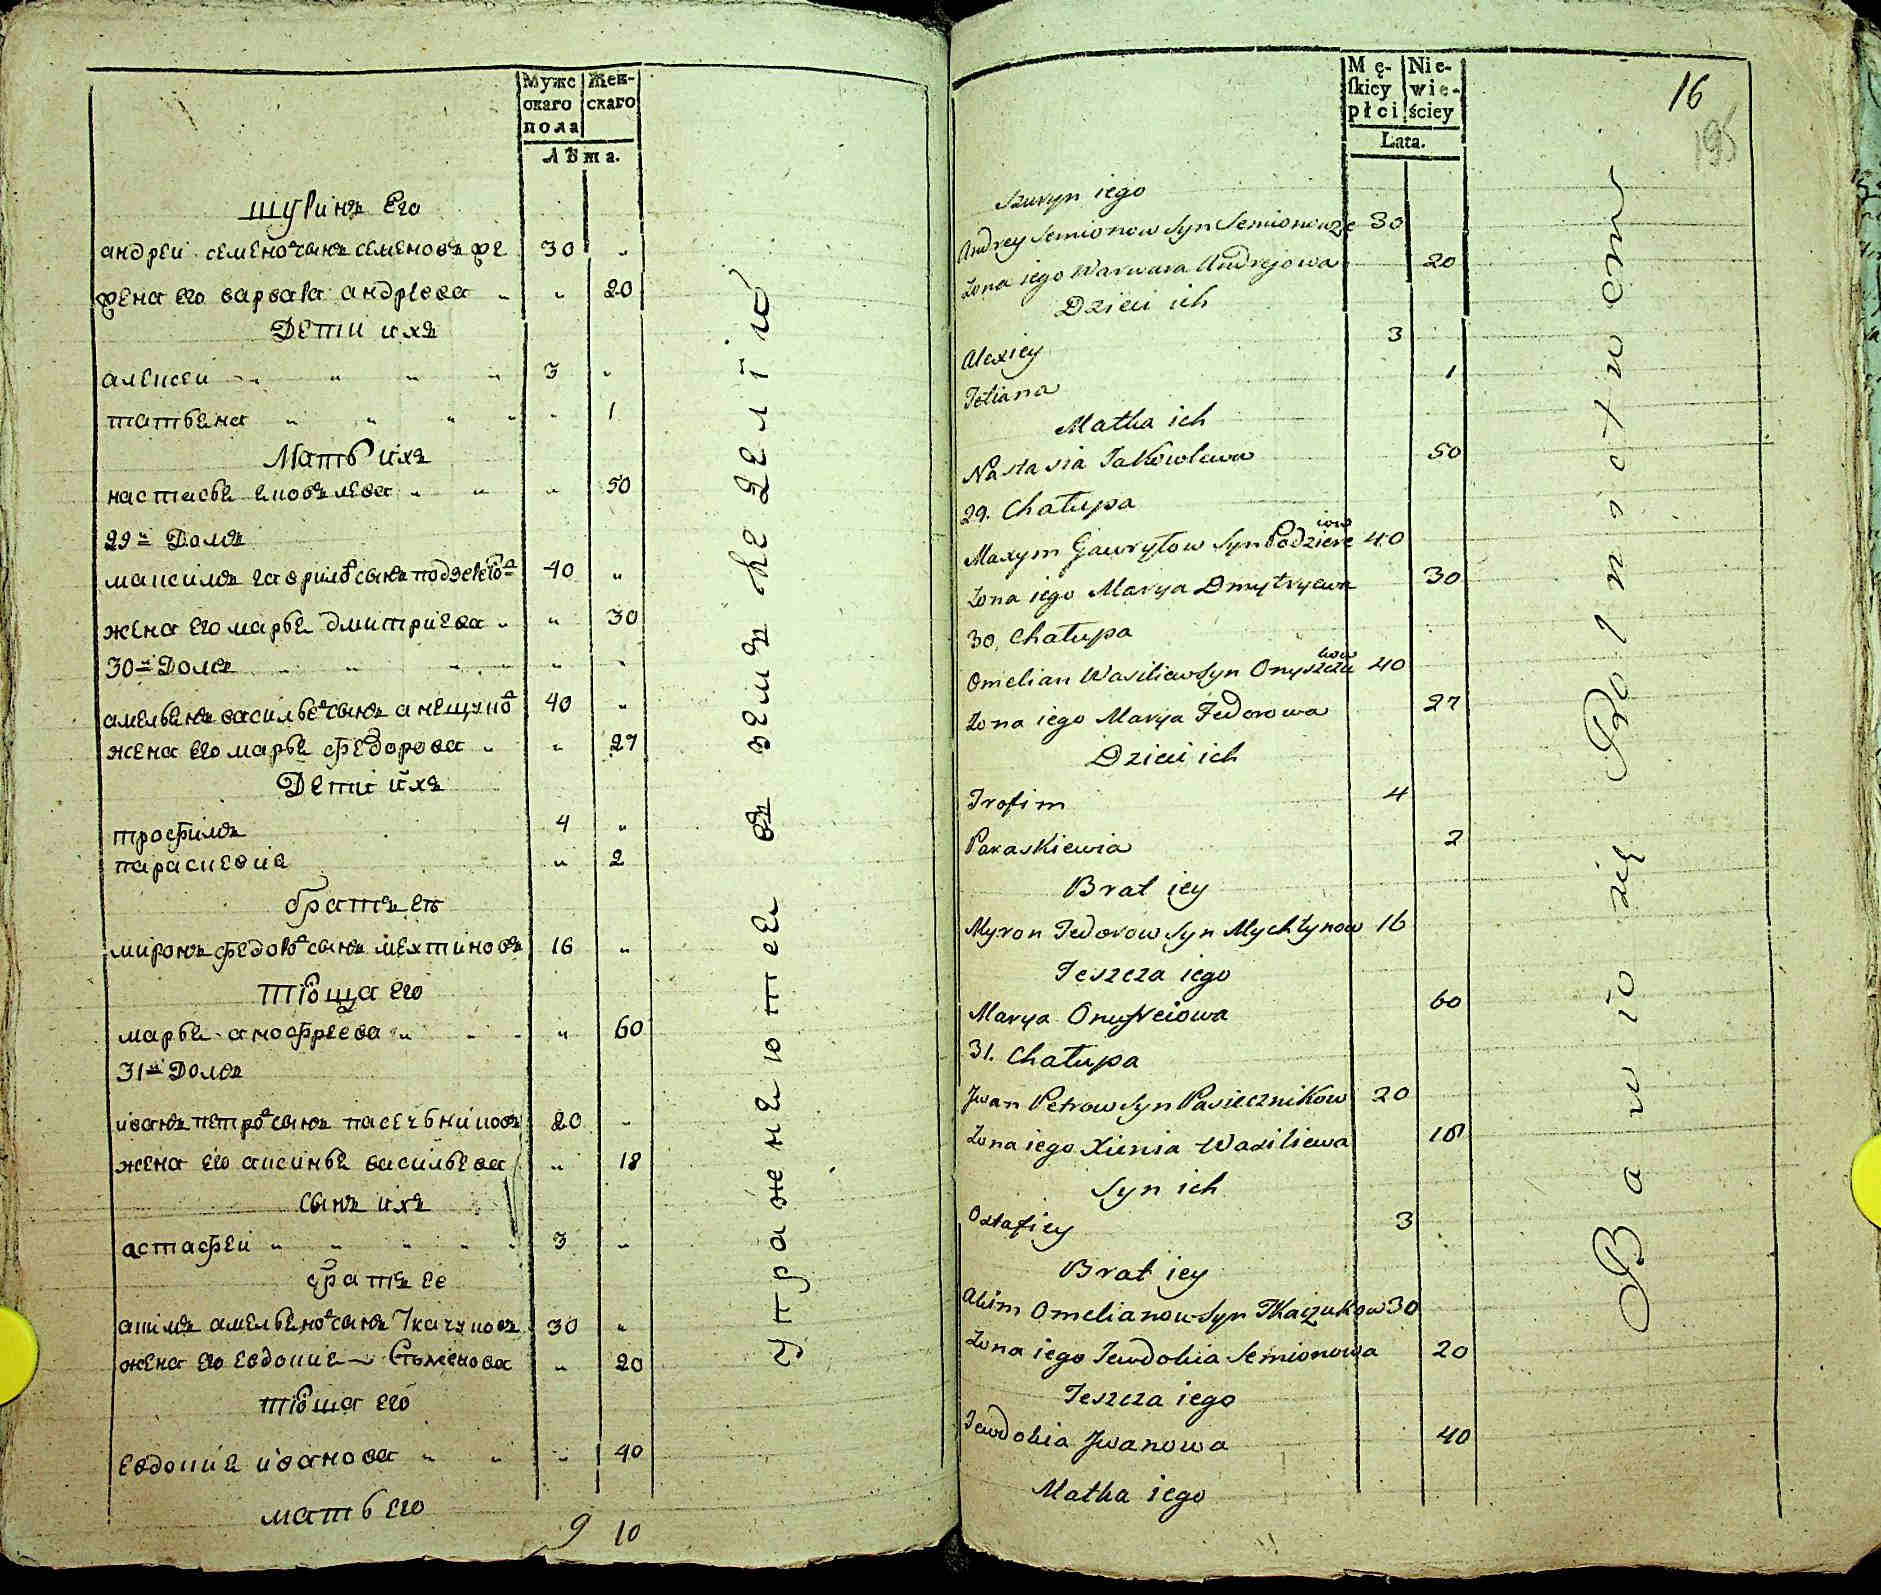 Мужс Жен-
скаго скаго
пола
Лѣта.
шуринъ его
андреи семеновъ сынъ семеновъ же 30 „
жена его варвара андреева „ „ 20
Дети ихъ
алексеи „ „ „ „ 3 „
татьяна „ „ „ „ „ 1
Мать ихъ
настасья яковлева „ „ „ 50
29й Домъ
максимъ гаврилов сынъ 40 „
жена его марья дмитриева „ „ 30
30й Домъ „ „ „ „ „ „
амельянъ васильев сынъ 40 „
жена его марья федорова „ „ 27
Дети ихъ
трофимъ 4 „
параскевия „ 2
братъ ея
миронъ федоров сынъ мехтиновъ 16 „
тюща его
марья анофреева „ „ 60
31й Домъ
иванъ петров сынъ пасечьниковъ 20 „
жена его аксинья васильева „ 18
сынъ ихъ
астафеи „ „ „ „ „ 3 „
братъ ее
акимъ амельянов сынъ Ткачуковъ 30 „
жена его евдокия Стеменова „ 20
тюща его
евдокия иванова „ „ „ 40
мать его
9 10
упраженяютея въ земледелiю
Mę- Nie-
skiey wie-
płci ściey
Lata.
16
195
Szuryn iego
Andrey Semionow Syn Semionow że 30
Żona iego Warwara Andrejowa 20
Dzieci ich
Alexiey 3
Tetiana 1
Matka ich
Nastasia Jakowlewa 50
29. Chałupa
Maxym Gawryłow Syn Podziere iow 40
Żona iego Marya Dmytryewa 30
30. Chałupa
Omelian Wasiliew Syn Onyszczu kow 40
Żona iego Marya Fedorowa 27
Dzieci ich
Trofim 4
Paraskiewia 2
Brat iey
Myron Fedorow Syn Mychtynow 16
Teszcza iego
Marya Onufreiowa 60
31. Chałupa
Jwan Petrow Syn Pasiecznikow 20
Żona iego Xienia Wasiliewa 18
Syn ich
Ostafiey 3
Brat iey
Akim Omelianow Syn Tkaczukow 30
Żona iego Jewdokia Semionowa 20
Teszcza iego
Jewdokia Jwanowa 40
Matka iego
Bawią się Rolnictwem